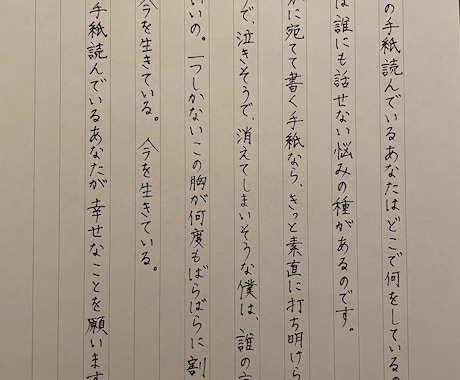 の手紙読んでいるあなたはどこで何をしているの
は誰にも話せない悩みの種があるのです。
かに宛てて書く手紙なら、きっと素直に打ち明けら
で、泣きそうで、消えてしまいそうな僕は、誰の言
いいの。一つしかないこの胸が何度もばらばらに割
今を生きている。 今を生きている。
手紙読んでいるあなたが 幸せなことを願います